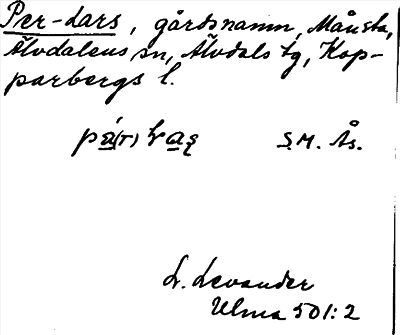 Per-Lars, gårdsnamn, Månsta,
Älvdalens sn, Älvdals tg, Kop-
parbergs l.
S.M. Ås.
L. Levander
Ulma 501:2